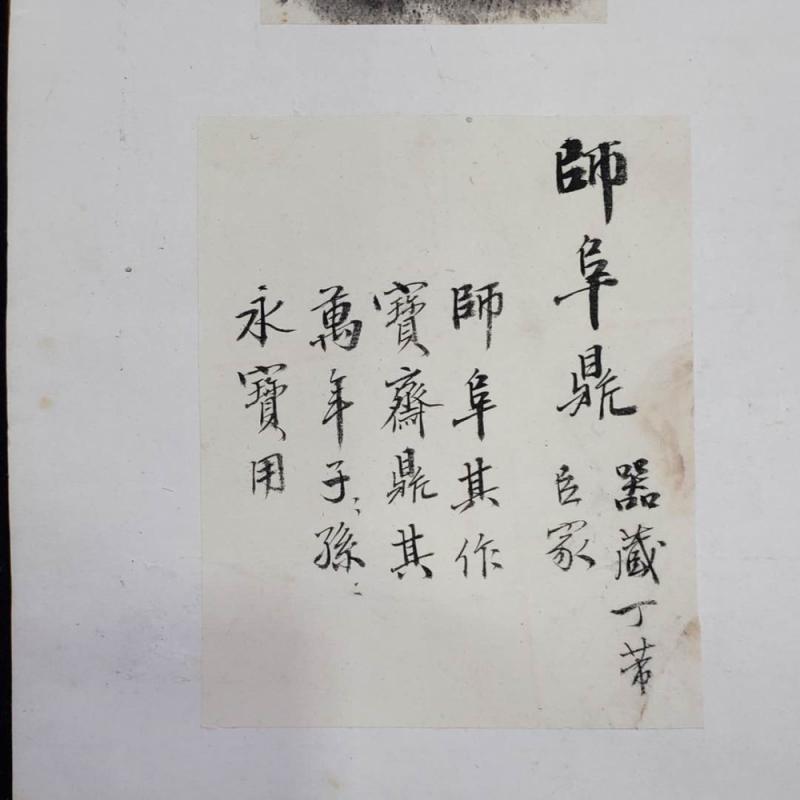 師𠂤鼎
器藏丁芾
臣家
師𠂤其作
寶齋鼎其
萬年子〻孫〻
永寶用